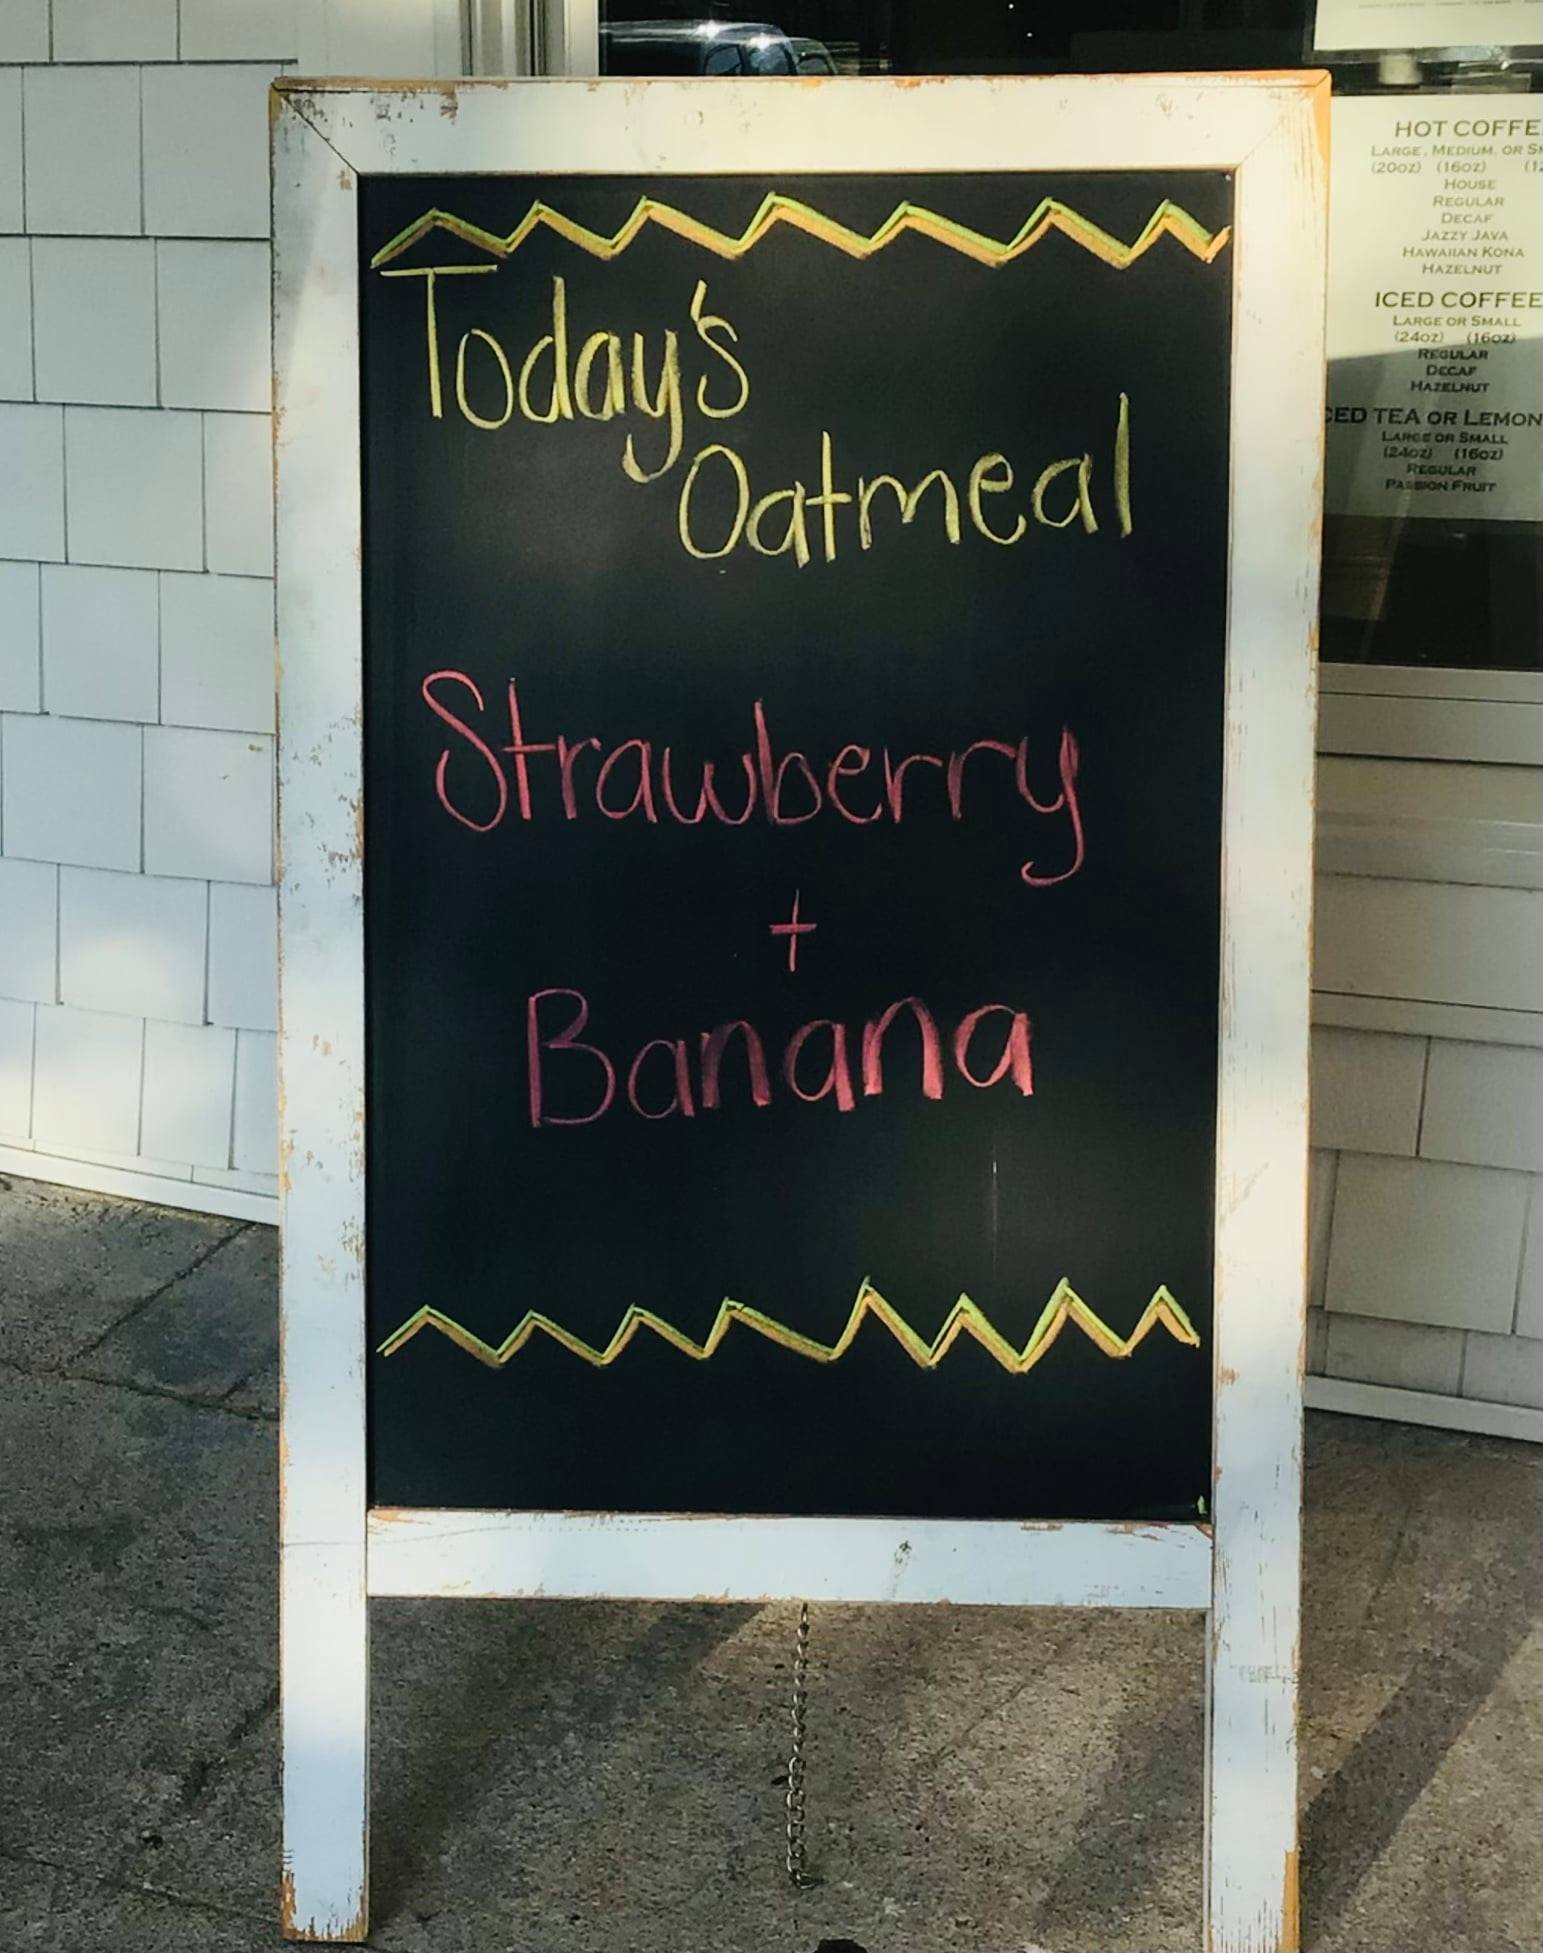 Today's
Oatmeal
Strawberry
+
Banana
HOT COFFE
LARGE, MEDIUM, OR
(20oz) (16oz)
HOUSE
REGULAR
DECAF
JAZZY JAVA
HAWAIIAN KONA
HAZELNUT
ICED COFFEE
LARGE OR SMALL
(24oz) (16oz)
REGULAR
DECAF
HAZELNUT
CED TEA OR LEMON
LARGE OR SMALL
(24oz) (16oz)
REGULAR
PASSION FRUIT